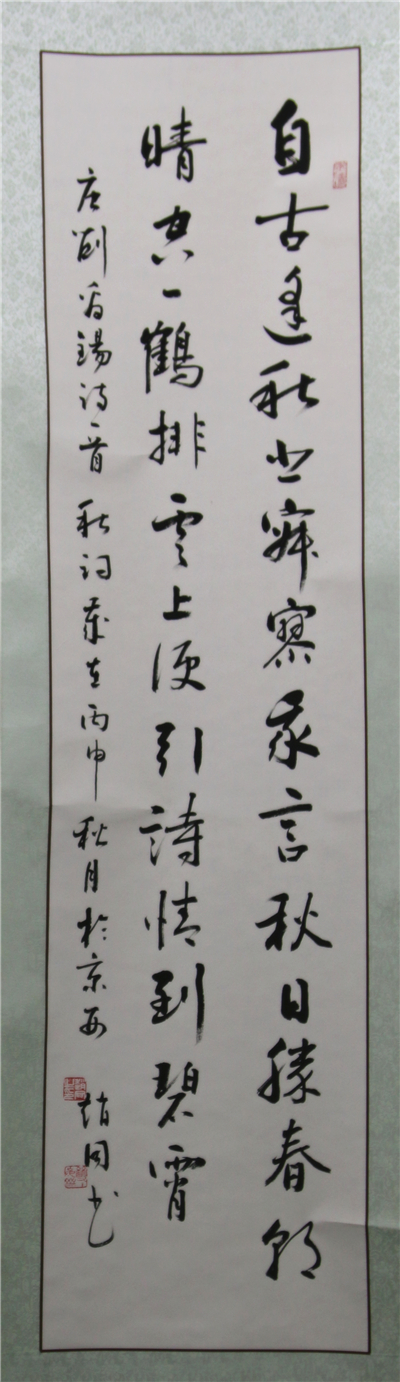 自古逢秋悲寂寥我言秋日勝春朝
晴空一鶴排雲上便引詩情到碧霄
唐劉禹錫詩一首秋詞歲在丙申秋月於京西
趙同书